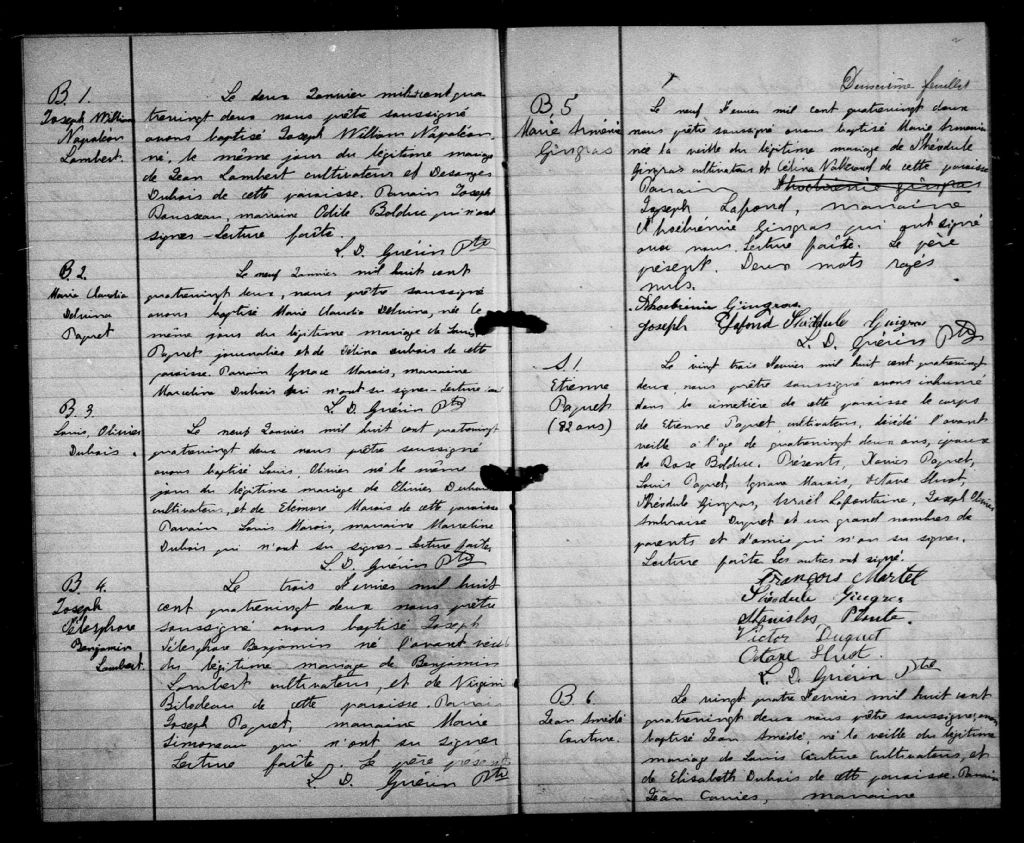 B. 1.
Joseph William
Napoléon
Lambert.
Le deux Janvier mil huit cent qua
trevingt deux nous prêtre soussigné
avons baptisé Joseph William Napoléon,
né, le même jour du légitime mariage
de Jean Lambert cultivateur et Desanges
Dubois de cette paroisse. Parrain Joseph
Rousseau, marraine Odile Bolduc qui n'ont
signer - Lecture faite.
L. D. Guérin Ptre
B 2.
Marie Claudia
Delvina
Paquet
Le neuf Janvier mil huit cent
quatrevingt deux, nous prêtre soussigné
avons baptisé Marie Claudia Delvina, née le
même jour du légitime mariage de Louis
Paquet journalier et de Délina Dubois de cette
paroisse. Parrain Ignace Marois, marraine
Marceline Dubois qui n'ont su signer - lecture
L. D. Guérin Ptre
B. 3.
Louis, Olivier
Dubois.
Le neuf Janvier mil huit cent quatrevingt
quatrevingt deux nous prêtre soussigné
avons baptisé Louis, Olivier né le même
jour du légitime mariage de Dubois
cultivateur, et de Eleonore Marois de cette paroisse
Parrain Louis Marois, marraine Marceline
Dubois qui n'ont su signer - Lecture faite,
L. D. Guérin Ptre
B. 4.
Joseph
Télesphore
Benjamin
Lambert.
Le trois Fevrier mil huit
cent quatrevingt deux nous prêtre
soussigné avons baptisé Joseph
Télesphore Benjamin né l'avant veille
du légitime mariage de Benjamin
Lambert cultivateur, et de Virginie
Bilodeau de cette paroisse. Parrain
Joseph Paquet, marraine Marie
Simoneau qui n'ont su signer
Lecture faite. Le père présent
L. D. Guérin Ptre
2
Deuxième feuillet
B 5
Marie
Gingras
Le neuf Fevrier mil cent quatrevingt deux
nous prêtre soussigné avons baptisé Marie
née la veille du légitime mariage de Théodule
Gingras cultivateur et Célina de cette paroisse
Parrain Gingras
Joseph Lafond, marraine
Gingras qui ont signé
avec nous. Lecture faite. Le père
présent. Deux mots rayés
nuls.
Gingras
Joseph Lafond Théodule Gingras
L. D. Guérin Ptre
S. 1.
Etienne
Paquet
(82 ans)
Le vingt trois Fevrier mil huit cent quatrevingt
deux, nous prêtre soussigné avons inhumé
dans le cimetière de cette paroisse le corps
de Etienne Paquet cultivateur, décédé l'avant
veille à l'âge de quatrevingt deux ans, époux
de Rose Bolduc. Présents, Xavier Paquet,
Louis Paquet, Ignace Marois, Octave Huot,
Théodule Gingras, Israël Lafontaine, Joseph Olivier
Ambroise Duquet et un grand nombres de
parents et d'amis qui n'on su signer.
Lecture faite Les autres ont signé.
François Martel
Théodule Gingras
Stanislas Plante.
Victor Duquet
Octave Huot.
L. D. Guérin Ptre
B. 6
Jean Amédé
Couture.
Le vingt quatre Fevrier mil huit cent
quatrevingt deux nous prêtre soussigné, avons
baptisé Jean Amédé, né la veille du légitime
mariage de Louis Couture Cultivateur, et
de Elisabeth Dubois de cette paroisse. Parrain
Jean, marraine